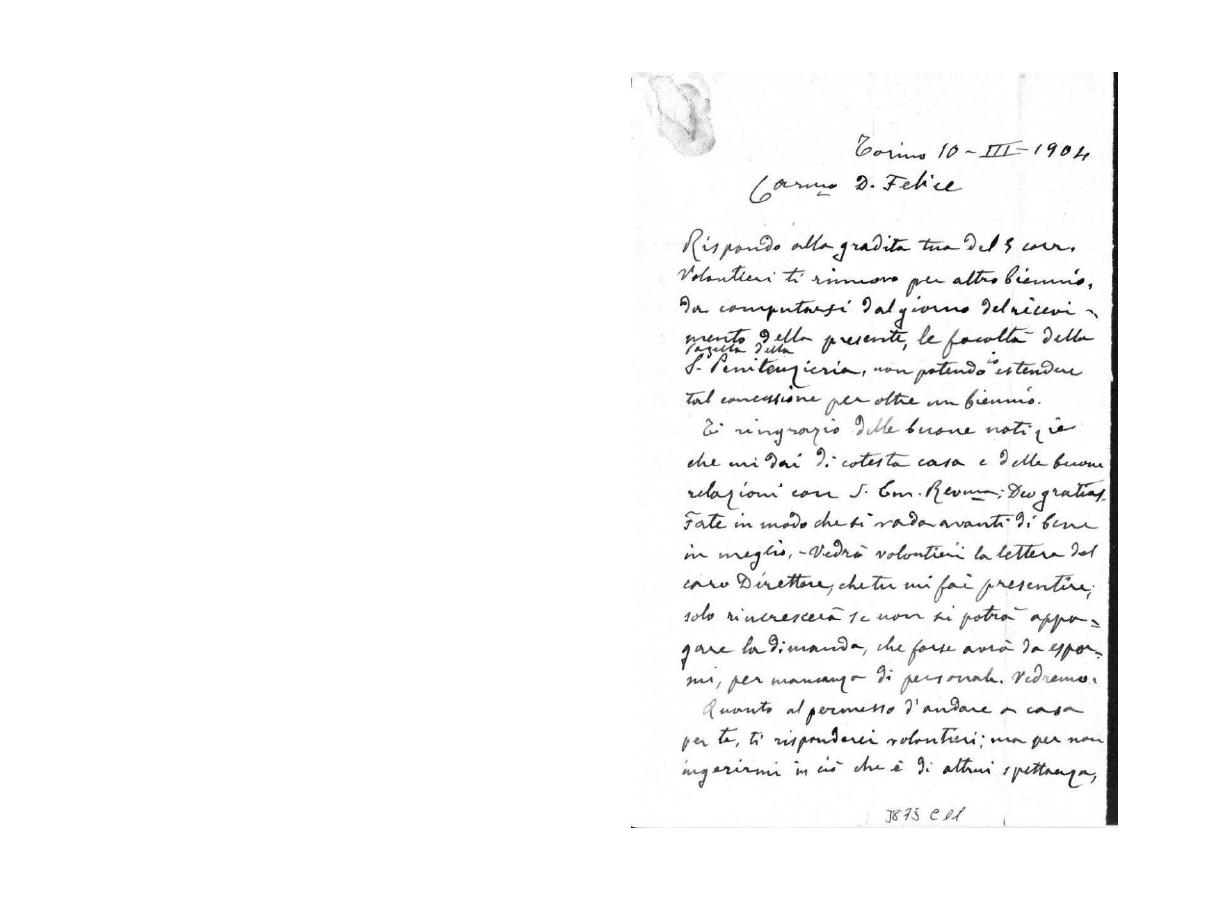 Torino 10-III-1904
Carmo D. Felice
Rispondo alla gradita tua del 5 corr.
Volontieri ti rinnovo per altro biennio,
da computarsi dal giorno del ricevi-
mento della presente, le facoltà della
pagella della
S. Penitenzieria, non potendo io estendere
tal concessione per oltre un biennio.
Ti ringrazio delle buone notizie
che mi dai di cotesta casa e delle buone
relazioni con S. Em. Revma; Deo gratias.
Fate in modo che si vada avanti di bene
in meglio. - Vedrò volontieri la lettera del
caro Direttore, che tu mi fai presentire;
solo rincrescerà se non si potrà appa=
gare la dimanda, che forse avrà da espor=
mi, per mancanza di personale. Vedremo.
Quanto al permesso d'andare a casa
per te, ti risponderei volontieri; ma per non
ingerirmi in ciò che è di altrui spettanza,
3875 C